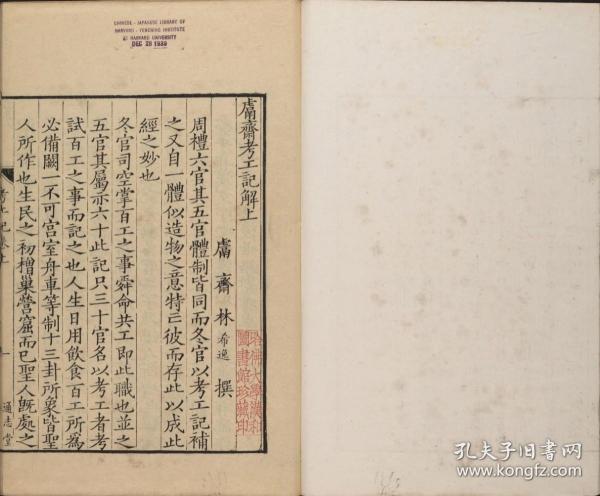 CHINESE - JAPANESE LIBRARY OF
HARVARD - YENCHING INSTITUTE
AT HARVARD UNIVERSITY
DEC 28 1938
鬳齋考工記解上
鬳齋林希逸撰
周禮六官其五官體制皆同而冬官以考工記補
之又自一體似造物之意特亡彼而存此以成此
經之妙也
冬官司空掌百工之事舜命共工即此職也並之
五官其屬亦六十此記只三十官名以考工者考
試百工之事而記之也人生日用飲食百工所為
必備闕一不可宮室舟車等制十三卦所象皆聖
人所作也生民之初橧巢營窟而已聖人既處之
考工記卷上
一
通志堂
哈佛大學漢和
圖書館珍藏印
孔夫子旧书网
www.kongfz.com